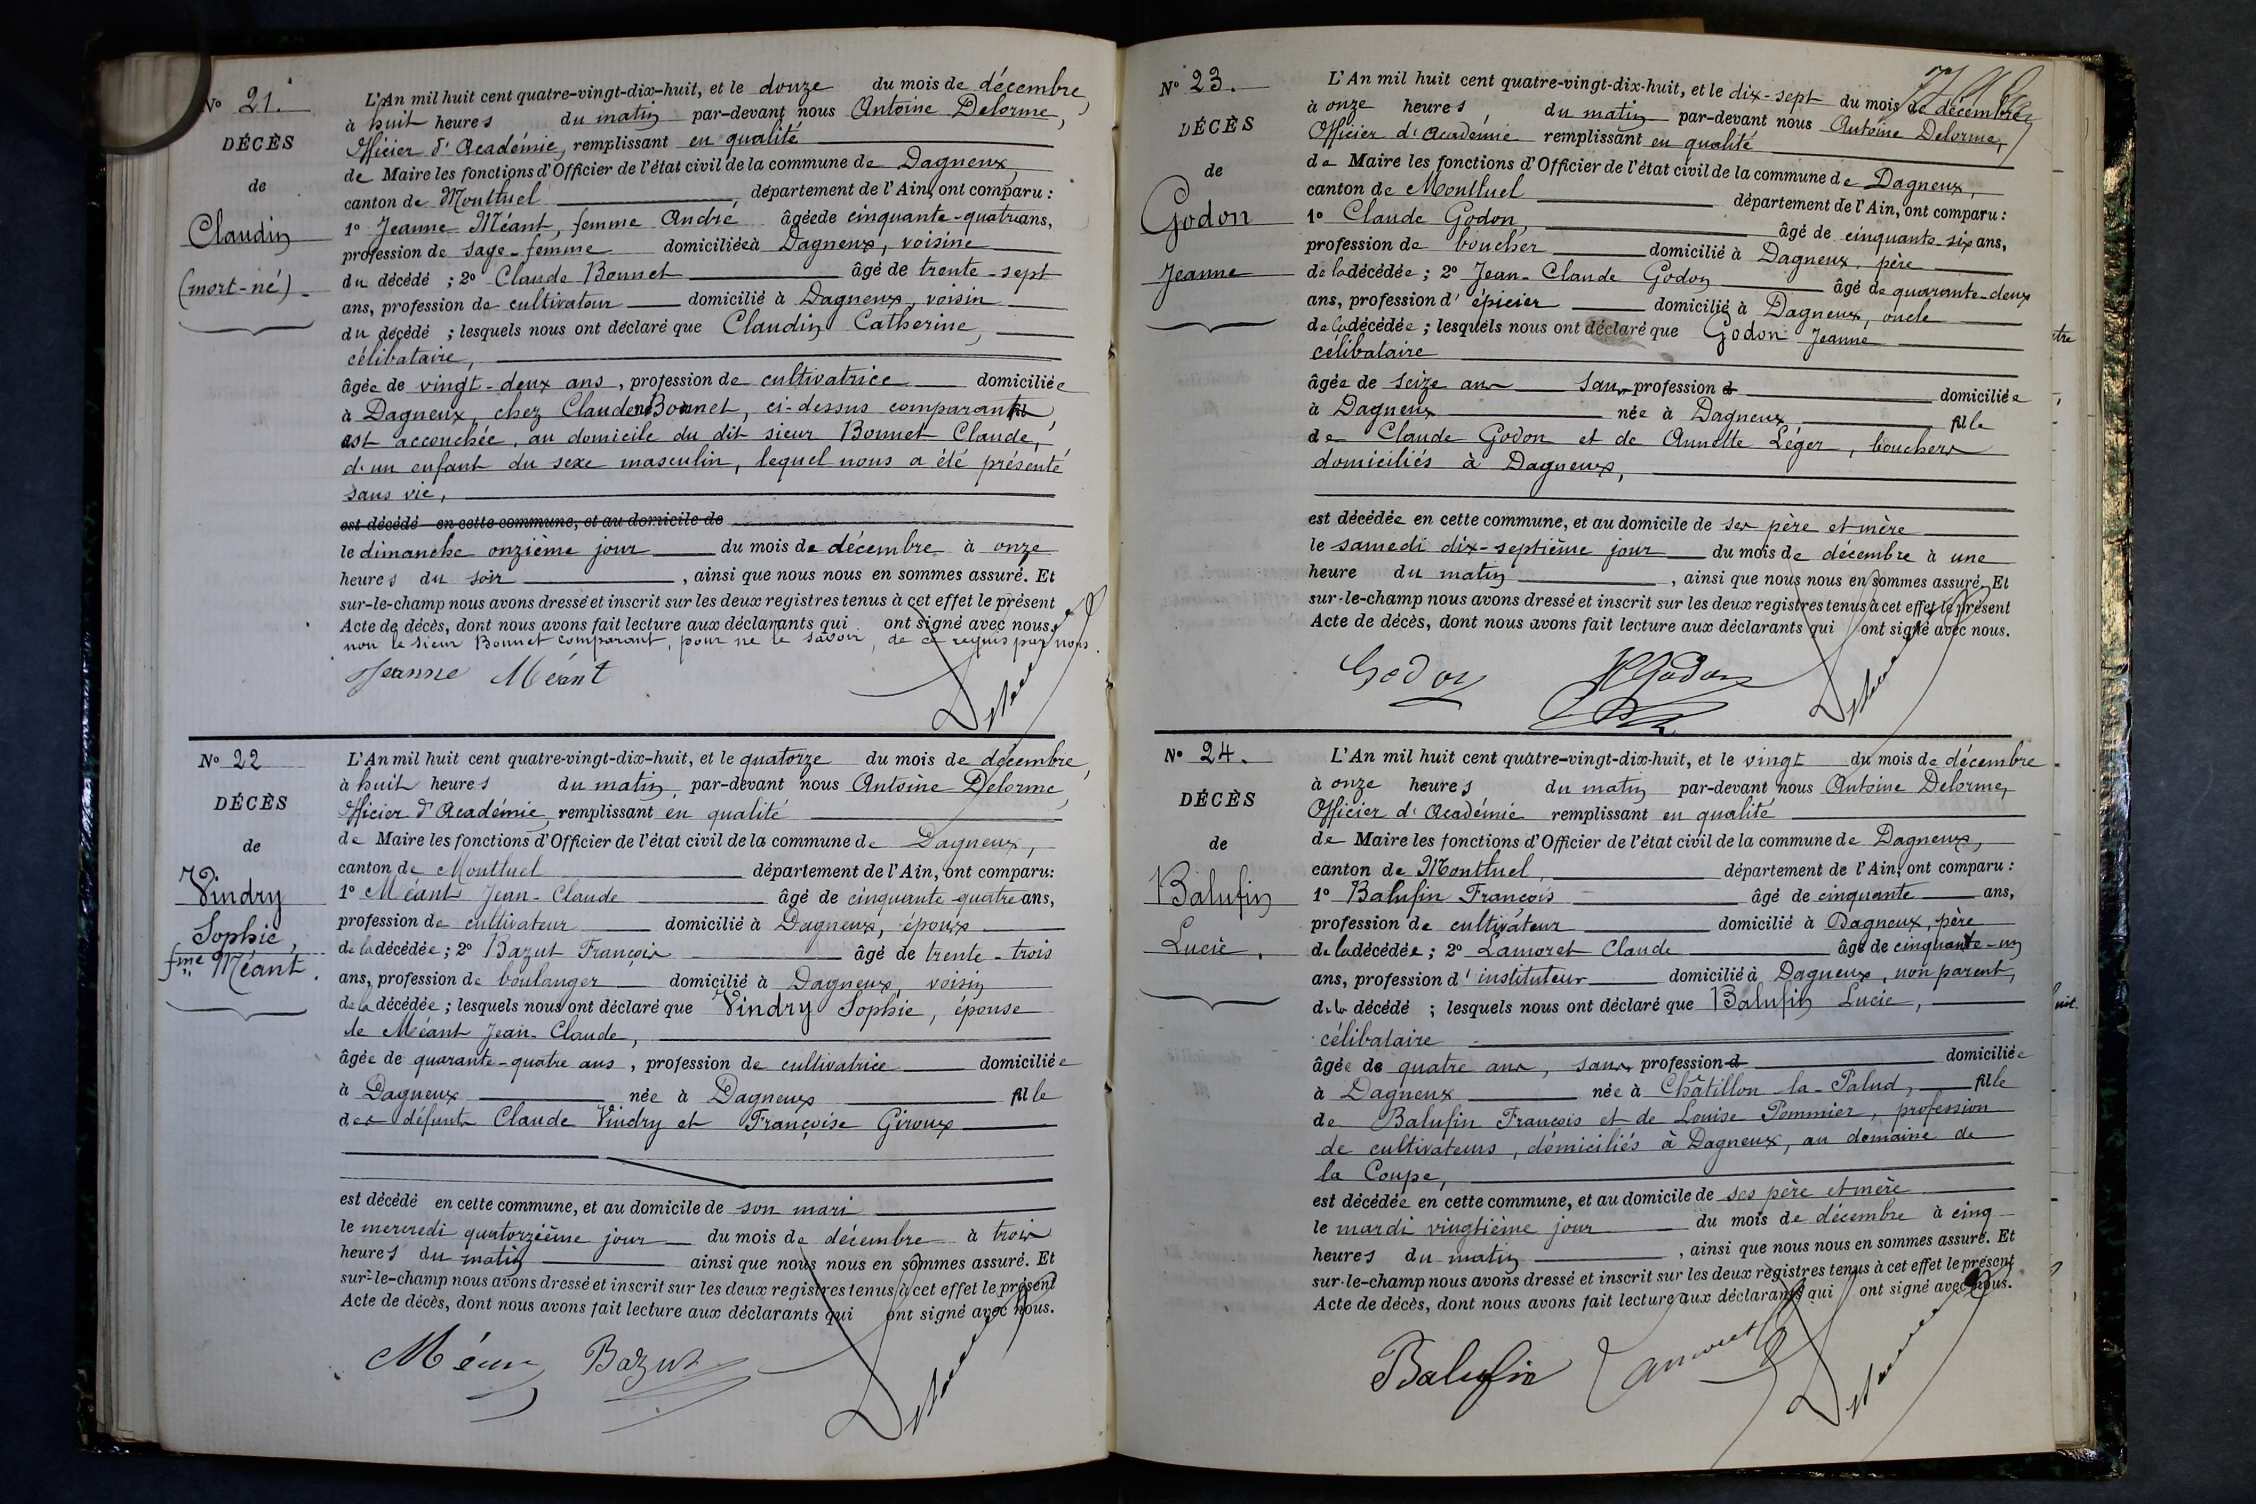 N° 21.
DÉCÈS
de
Claudin
(mort-né)
L'An mil huit cent quatre-vingt-dix-huit, et le douze du mois de décembre,
à huit heures du matin par-devant nous Antoine Delorme,
Officier d'Académie, remplissant en qualité
de Maire les fonctions d'Officier de l'état civil de la commune de Dagneux,
canton de Montluel, département de l'Ain, ont comparu :
1° Jeanne Méant, femme André âgée de cinquante-quatre ans,
profession de sage-femme domiciliée à Dagneux, voisine
du décédé ; 2° Claude Bonnet âgé de trente-sept
ans, profession de cultivateur domicilié à Dagneux, voisin
du décédé ; lesquels nous ont déclaré que Claudin Catherine,
célibataire,
âgée de vingt-deux ans, profession de cultivatrice domiciliée
à Dagneux, chez Claude Bonnet, ci-dessus comparant
est accouchée, au domicile du dit sieur Bonnet Claude,
d'un enfant du sexe masculin, lequel nous a été présenté
sans vie,
est décédé en cette commune, et au domicile de
le dimanche onzième jour du mois de décembre à onze
heures du soir, ainsi que nous nous en sommes assuré. Et
sur-le-champ nous avons dressé et inscrit sur les deux registres tenus à cet effet le présent
Acte de décès, dont nous avons fait lecture aux déclarants qui ont signé avec nous,
non le sieur Bonnet comparant, pour ne le savoir, de ce requis par nous.
Jeanne Méant
Delorme
N° 22
DÉCÈS
de
Vindry
Sophie,
fme Méant.
L'An mil huit cent quatre-vingt-dix-huit, et le quatorze du mois de décembre,
à huit heures du matin, par-devant nous Antoine Delorme,
Officier d'Académie, remplissant en qualité
de Maire les fonctions d'Officier de l'état civil de la commune de Dagneux,
canton de Montluel département de l'Ain, ont comparu:
1° Méant Jean-Claude âgé de cinquante-quatre ans,
profession de cultivateur domicilié à Dagneux, époux
de la décédée ; 2° Bazut François âgé de trente-trois
ans, profession de boulanger domicilié à Dagneux, voisin
de la décédée ; lesquels nous ont déclaré que Vindry Sophie, épouse
de Méant Jean-Claude,
âgée de quarante-quatre ans, profession de cultivatrice domiciliée
à Dagneux née à Dagneux fille
des défunts Claude Vindry et Françoise Giroux
est décédé en cette commune, et au domicile de son mari
le mercredi quatorzième jour du mois de décembre à trois
heures du matin ainsi que nous nous en sommes assuré. Et
sur-le-champ nous avons dressé et inscrit sur les deux registres tenus à cet effet le présent
Acte de décès, dont nous avons fait lecture aux déclarants qui ont signé avec nous.
Méant Bazut
Delorme
N° 23.
DÉCÈS
de
Godon
Jeanne
L'An mil huit cent quatre-vingt-dix-huit, et le dix-sept du mois de décembre
à onze heures du matin par-devant nous Antoine Delorme,
Officier d'Académie remplissant en qualité
de Maire les fonctions d'Officier de l'état civil de la commune de Dagneux,
canton de Montluel département de l'Ain, ont comparu :
1° Claude Godon, âgé de cinquante-six ans,
profession de boucher domicilié à Dagneux, père
de la décédée ; 2° Jean-Claude Godon âgé de quarante-deux
ans, profession d'épicier domicilié à Dagneux, oncle
de la décédée ; lesquels nous ont déclaré que Godon Jeanne
célibataire
âgée de seize ans sans profession d domiciliée
à Dagneux née à Dagneux, fille
de Claude Godon et de Annette Léger, bouchers
domiciliés à Dagneux,
est décédée en cette commune, et au domicile de ses père et mère
le samedi dix-septième jour du mois de décembre à une
heure du matin, ainsi que nous nous en sommes assuré. Et
sur-le-champ nous avons dressé et inscrit sur les deux registres tenus à cet effet le présent
Acte de décès, dont nous avons fait lecture aux déclarants qui ont signé avec nous.
Godon JC Godon
Delorme
N° 24.
DÉCÈS
de
Balufin
Lucie.
L'An mil huit cent quatre-vingt-dix-huit, et le vingt du mois de décembre
à onze heures du matin par-devant nous Antoine Delorme,
Officier d'Académie remplissant en qualité
de Maire les fonctions d'Officier de l'état civil de la commune de Dagneux,
canton de Montluel, département de l'Ain, ont comparu :
1° Balufin François âgé de cinquante ans,
profession de cultivateur domicilié à Dagneux, père
de la décédée ; 2° Lamoret Claude âgé de cinquante-un
ans, profession d'instituteur domicilié à Dagneux, non parent,
de la décédé ; lesquels nous ont déclaré que Balufin Lucie,
célibataire
âgée de quatre ans, sans profession d domiciliée
à Dagneux née à Châtillon-la-Palud, fille
de Balufin François et de Louise Pommier, profession
de cultivateurs, domiciliés à Dagneux, au domaine de
la Coupe,
est décédée en cette commune, et au domicile de ses père et mère
le mardi vingtième jour du mois de décembre à cinq
heures du matin, ainsi que nous nous en sommes assuré. Et
sur-le-champ nous avons dressé et inscrit sur les deux registres tenus à cet effet le présent
Acte de décès, dont nous avons fait lecture aux déclarants qui ont signé avec nous.
Balufin Lamoret
Delorme